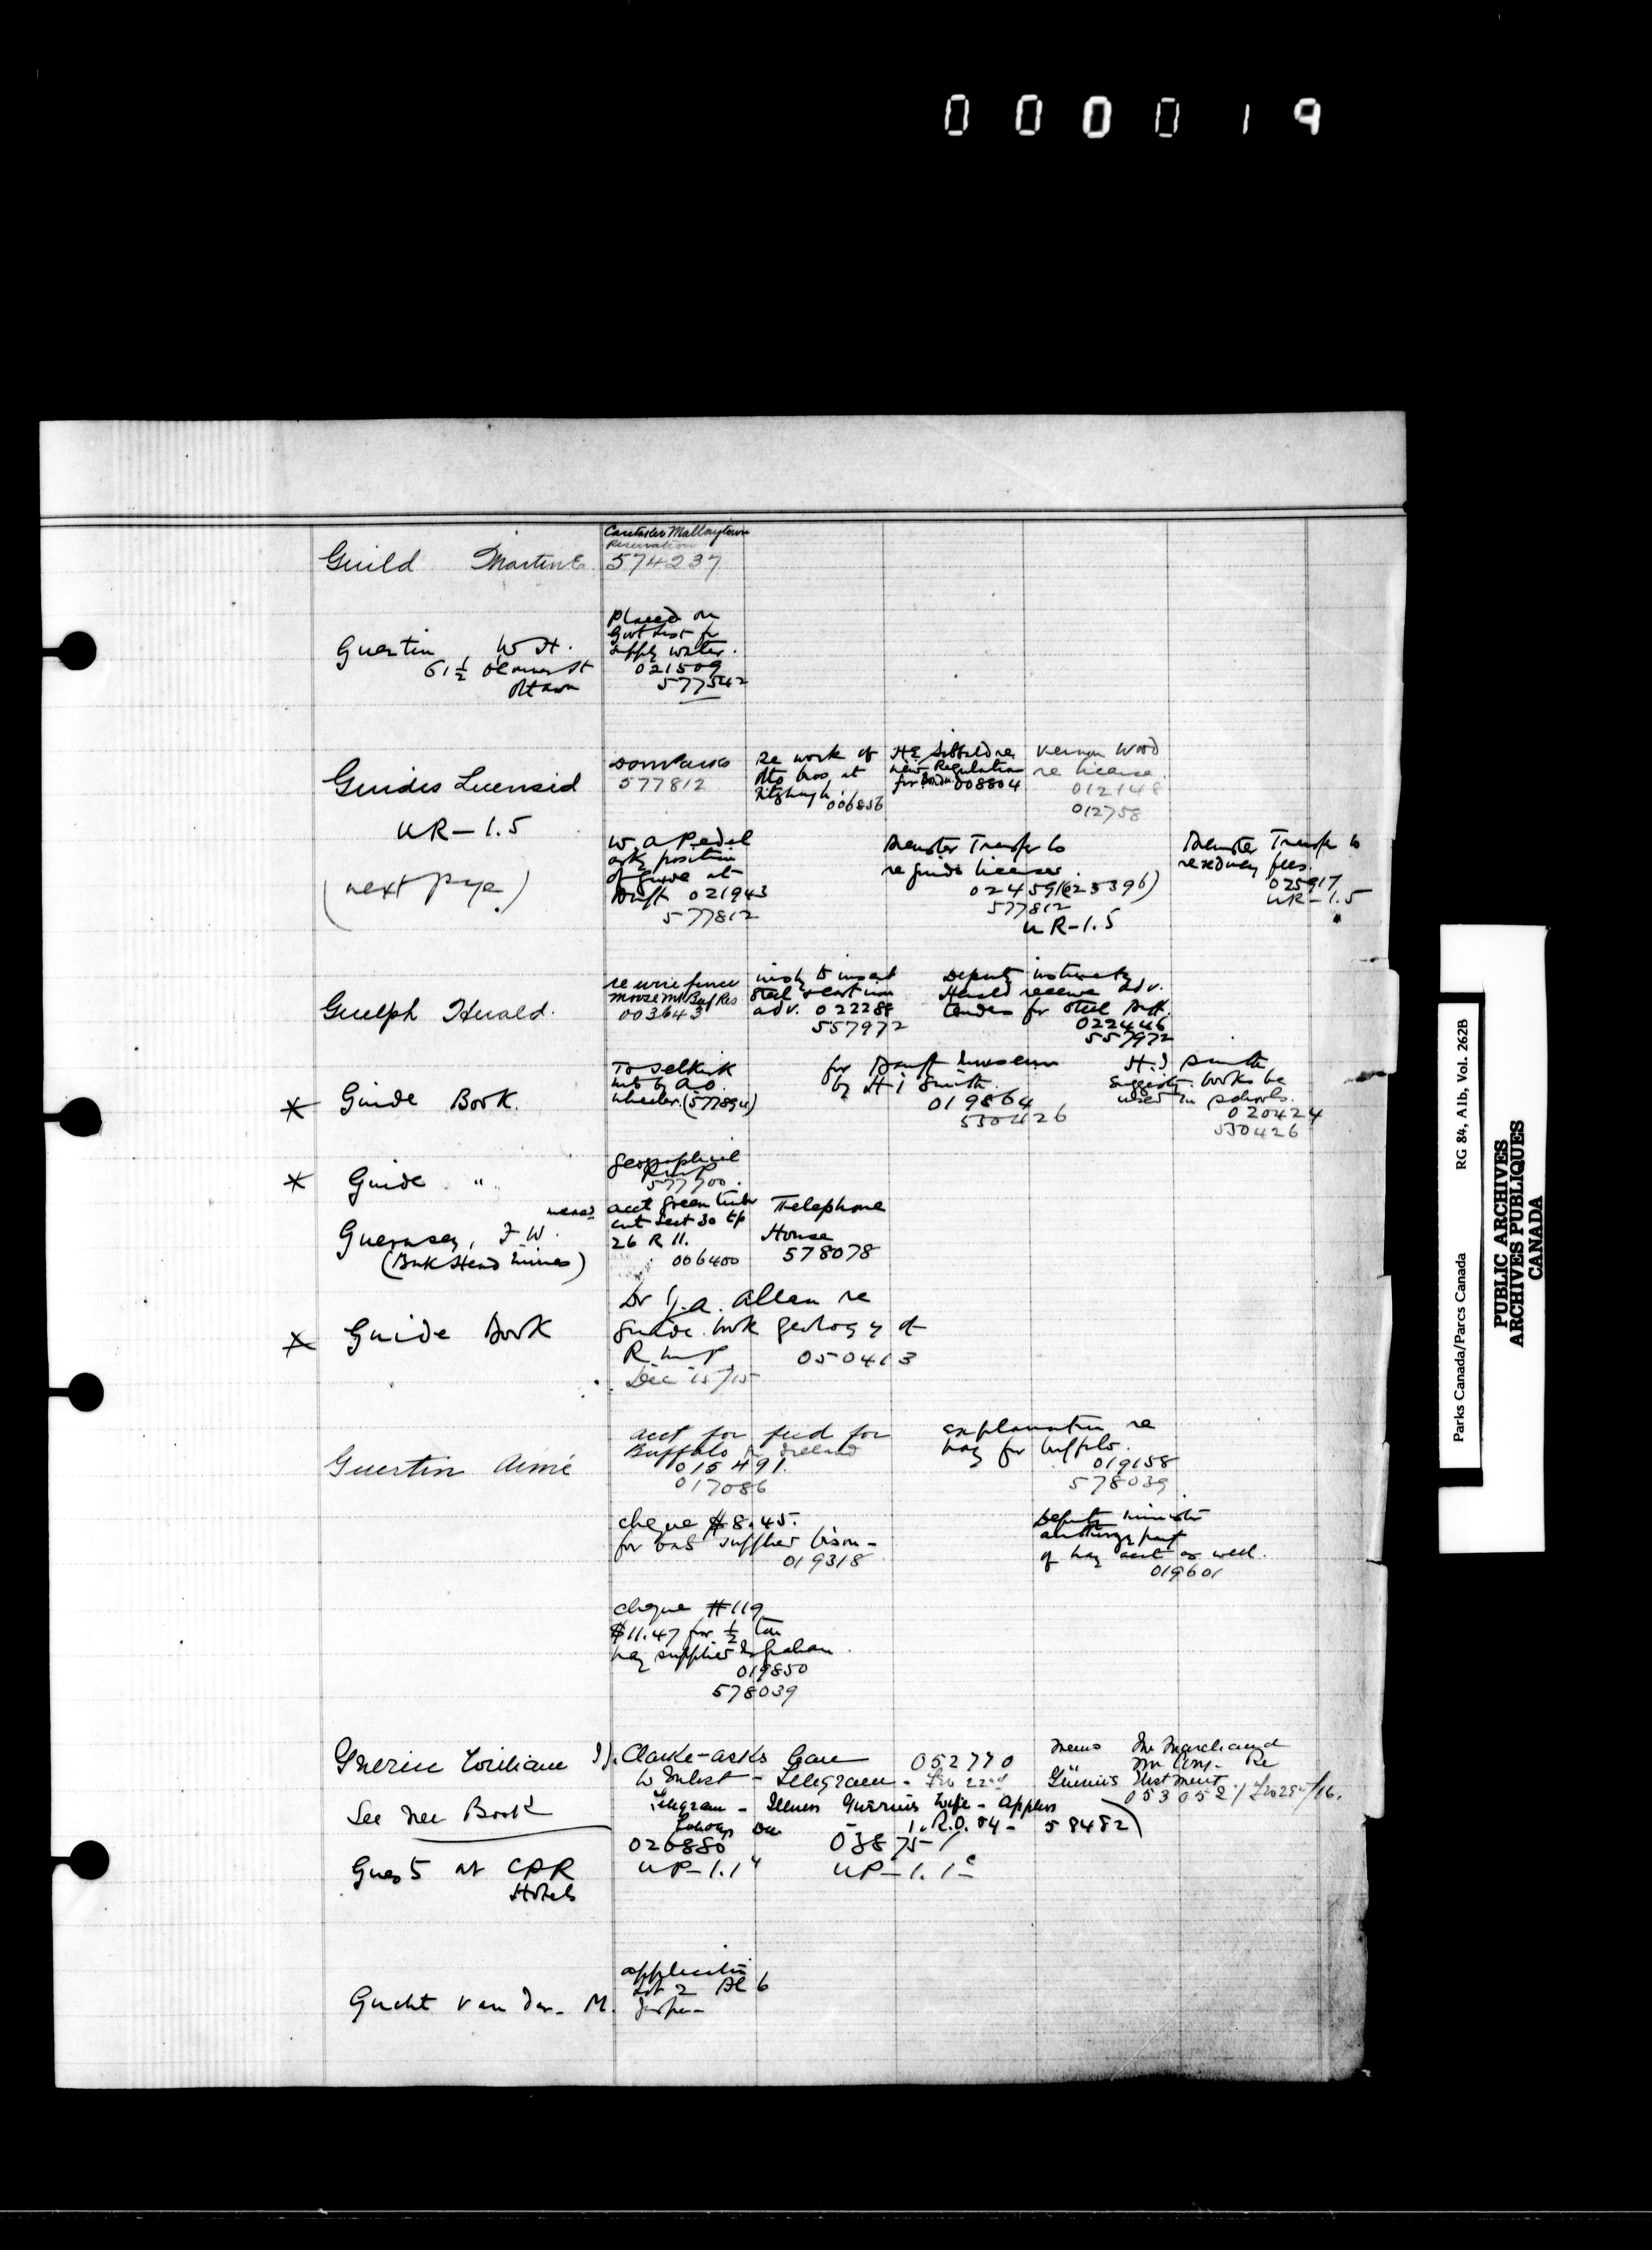 000019
Caretaker Mallorytown
Reservation
Guild Martin E 574237
Placed on
Govt List for
supply water.
Guertin, W H.
61½ St
Ottawa
021509
577542
Guides Licensed
UR-1.5
(next page)
Dom Parks
577812
Re work of
Otto Bros. at
Fitzhugh.
006856
H.E. Sibbald re
new Regulation
for 008804
Vernon Wood
re license.
012148
012758
W. A Pedel
asks position
of guide at
Banff 021943
577812
Brewster Transfer Co
re guides licenses.
024591(023396)
577812
UR-1.5
Brewster Transfer Co
re fees.
025917
UR-1.5
Guelph Herald.
re wire fence
Moose Mt Buf Res
003643
wish to insert
steel & cast iron
adv. 022288
557972
Deputy instructs
Herald receive adv.
tender for steel
022446
557972
* Guide Book.
To Selkirk
Mts by A.O.
Wheeler. (577894)
for Banff Museum
by H I Smith.
019864
530426
H. I Smith
suggests books be
used in schools.
020424
530426
* Guide "
Geographical
RMP
577700.
Guernsey, F. W.
(Bank Head Mines)
acct green timber
cut Sect 30 tp
26 R 11.
006400
Telephone
House
578078
* Guide Book
Dr J. A. Allan re
guide book geology of
R. M P.
050413
Dec 15/15
Guertin Aimé
acct for feed for
Buffalo
015491.
017086
explanation re
hay for buffalo.
019158
578039
cheque $8.45.
for oats supplied bison -
019318
Deputy Minister
authorizes payt
of hay acct as well.
019601
cheque #119
$11.47 for ½ ton
hay supplied
019850
578039
Guerin William D. Clarke - asks leave
052770
to Enlist - Telegram - Feb 22nd
Memo Mr Marchand
" Mr Cory - Re
Guerin's Enlistment
053052 / Feb 25th/16.
See New Book
Telegram - Illness Guerin's Wife - applies
1. R.O. 84 - 58482)
Guests at CPR
Hotels
026880
UP-1.1
038751
UP-1.1
Gucht Van der - M.
application
Lot 2 Bl 6
Jasper -
Parks Canada/Parcs Canada RG 84, A1b, Vol. 262B
PUBLIC ARCHIVES
ARCHIVES PUBLIQUES
CANADA